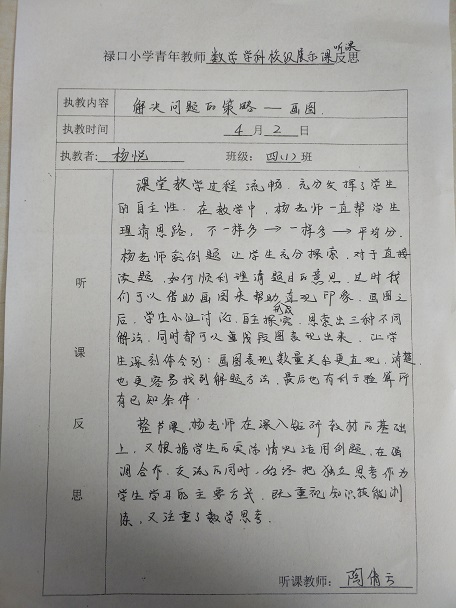 禄口小学青年教师 数学学科校级展示课听课反思
执教内容 解决问题的策略——画图
执教时间 4月2日
执教者: 杨悦 班级: 四(1)班
听课反思
课堂教学过程流畅.充分发挥了学生
的自主性.在教学中,杨老师一直帮学生
理清思路,不一样多→一样多→平均分.
杨老师 例题让学生充分探索,对于直接
读题,如何顺利理清题目的意思,这时我
们可以借助画图来帮助直观印象.画图之
后,学生小组讨论,自主探究,思索出三种不同
解法,同时都可以在线段图表现出来,让学
生深刻体会到:画图表现数量关系更直观,清楚
也更容易找到解题方法,最后也有利于验算所
有已知条件.
整节课,杨老师在深入钻研教材的基础
上,又根据学生的实际情况活用例题,在强
调合作、交流的同时,始终把独立思考作为
学生学习的主要方式,既重视知识技能训
练,又注重了数学思考.
听课教师: 陶倩云